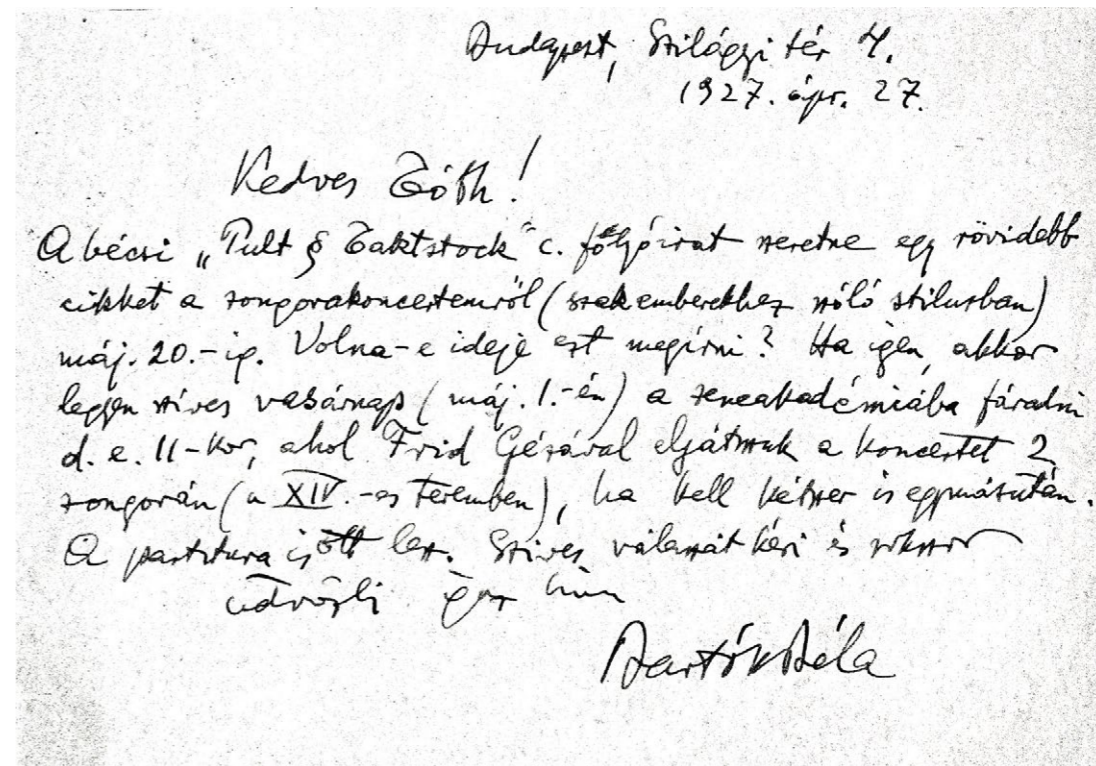 Budapest, Szilágyi tér 4.
1927. ápr. 27.
Kedves Tóth!
A bécsi „Pult & Taktstock” c. folyóirat szeretne egy rövidebb
cikket a zongorakoncertemről (szakemberekhez szóló stílusban)
máj. 20.-ig. Volna-e ideje ezt megírni? Ha igen, akkor
legyen szíves vasárnap (máj. 1.-én) a zeneakadémiába fáradni
d. e. 11-kor, ahol Frid Gézával eljátszuk a koncertet 2
zongorán (a XIV.-es teremben), ha kell kétszer is egymásután.
A partitura is ott lesz. Szíves válaszát kéri és sokszor
üdvözli igaz híve
Bartók Béla